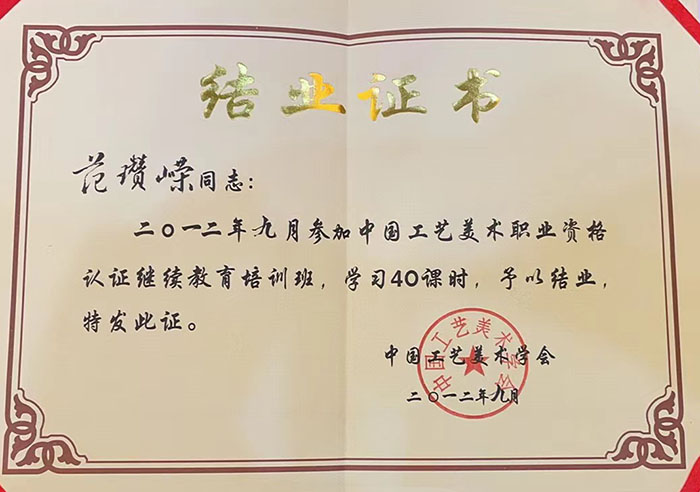 结业证书
范瓒嵘同志：
二〇一二年九月参加中国工艺美术职业资格
认证继续教育培训班，学习40课时，予以结业，
特发此证。
中国工艺美术学会
二〇一二年九月
中国工艺美术学会